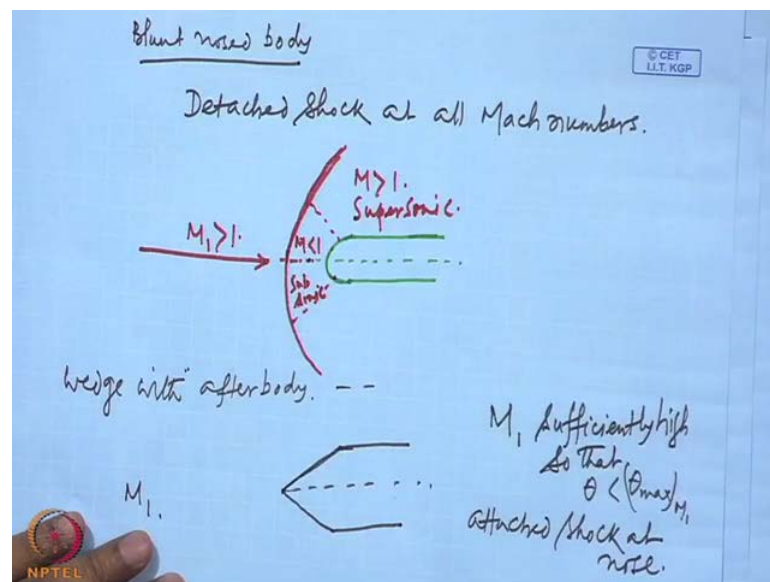 Blunt nosed body
© CET
I.I.T. KGP
Detached Shock at all Mach numbers.
M>1.
Supersonic.
M₁>1.
M<1
Sub
sonic
Wedge with afterbody. --
M₁.
M₁ Sufficiently high
So that
θ < (θmax)M₁
attached shock at
nose.
NPTEL